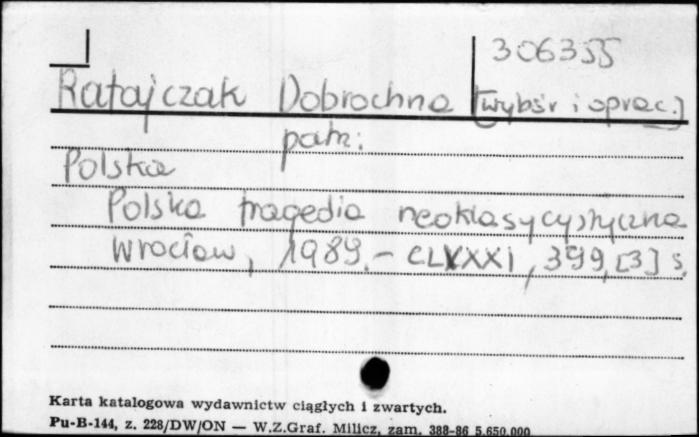 306355
Ratajczak Dobrochna [wybór i oprac.]
patrz:
Polska
Polska tragedia neoklasycystyczna
Wrocław, 1989. - CLXXXI, 399, [3] s.
Karta katalogowa wydawnictw ciągłych i zwartych.
Pu-B-144, z. 228/DW/ON — W.Z.Graf. Milicz, zam. 388-86 5.650.000